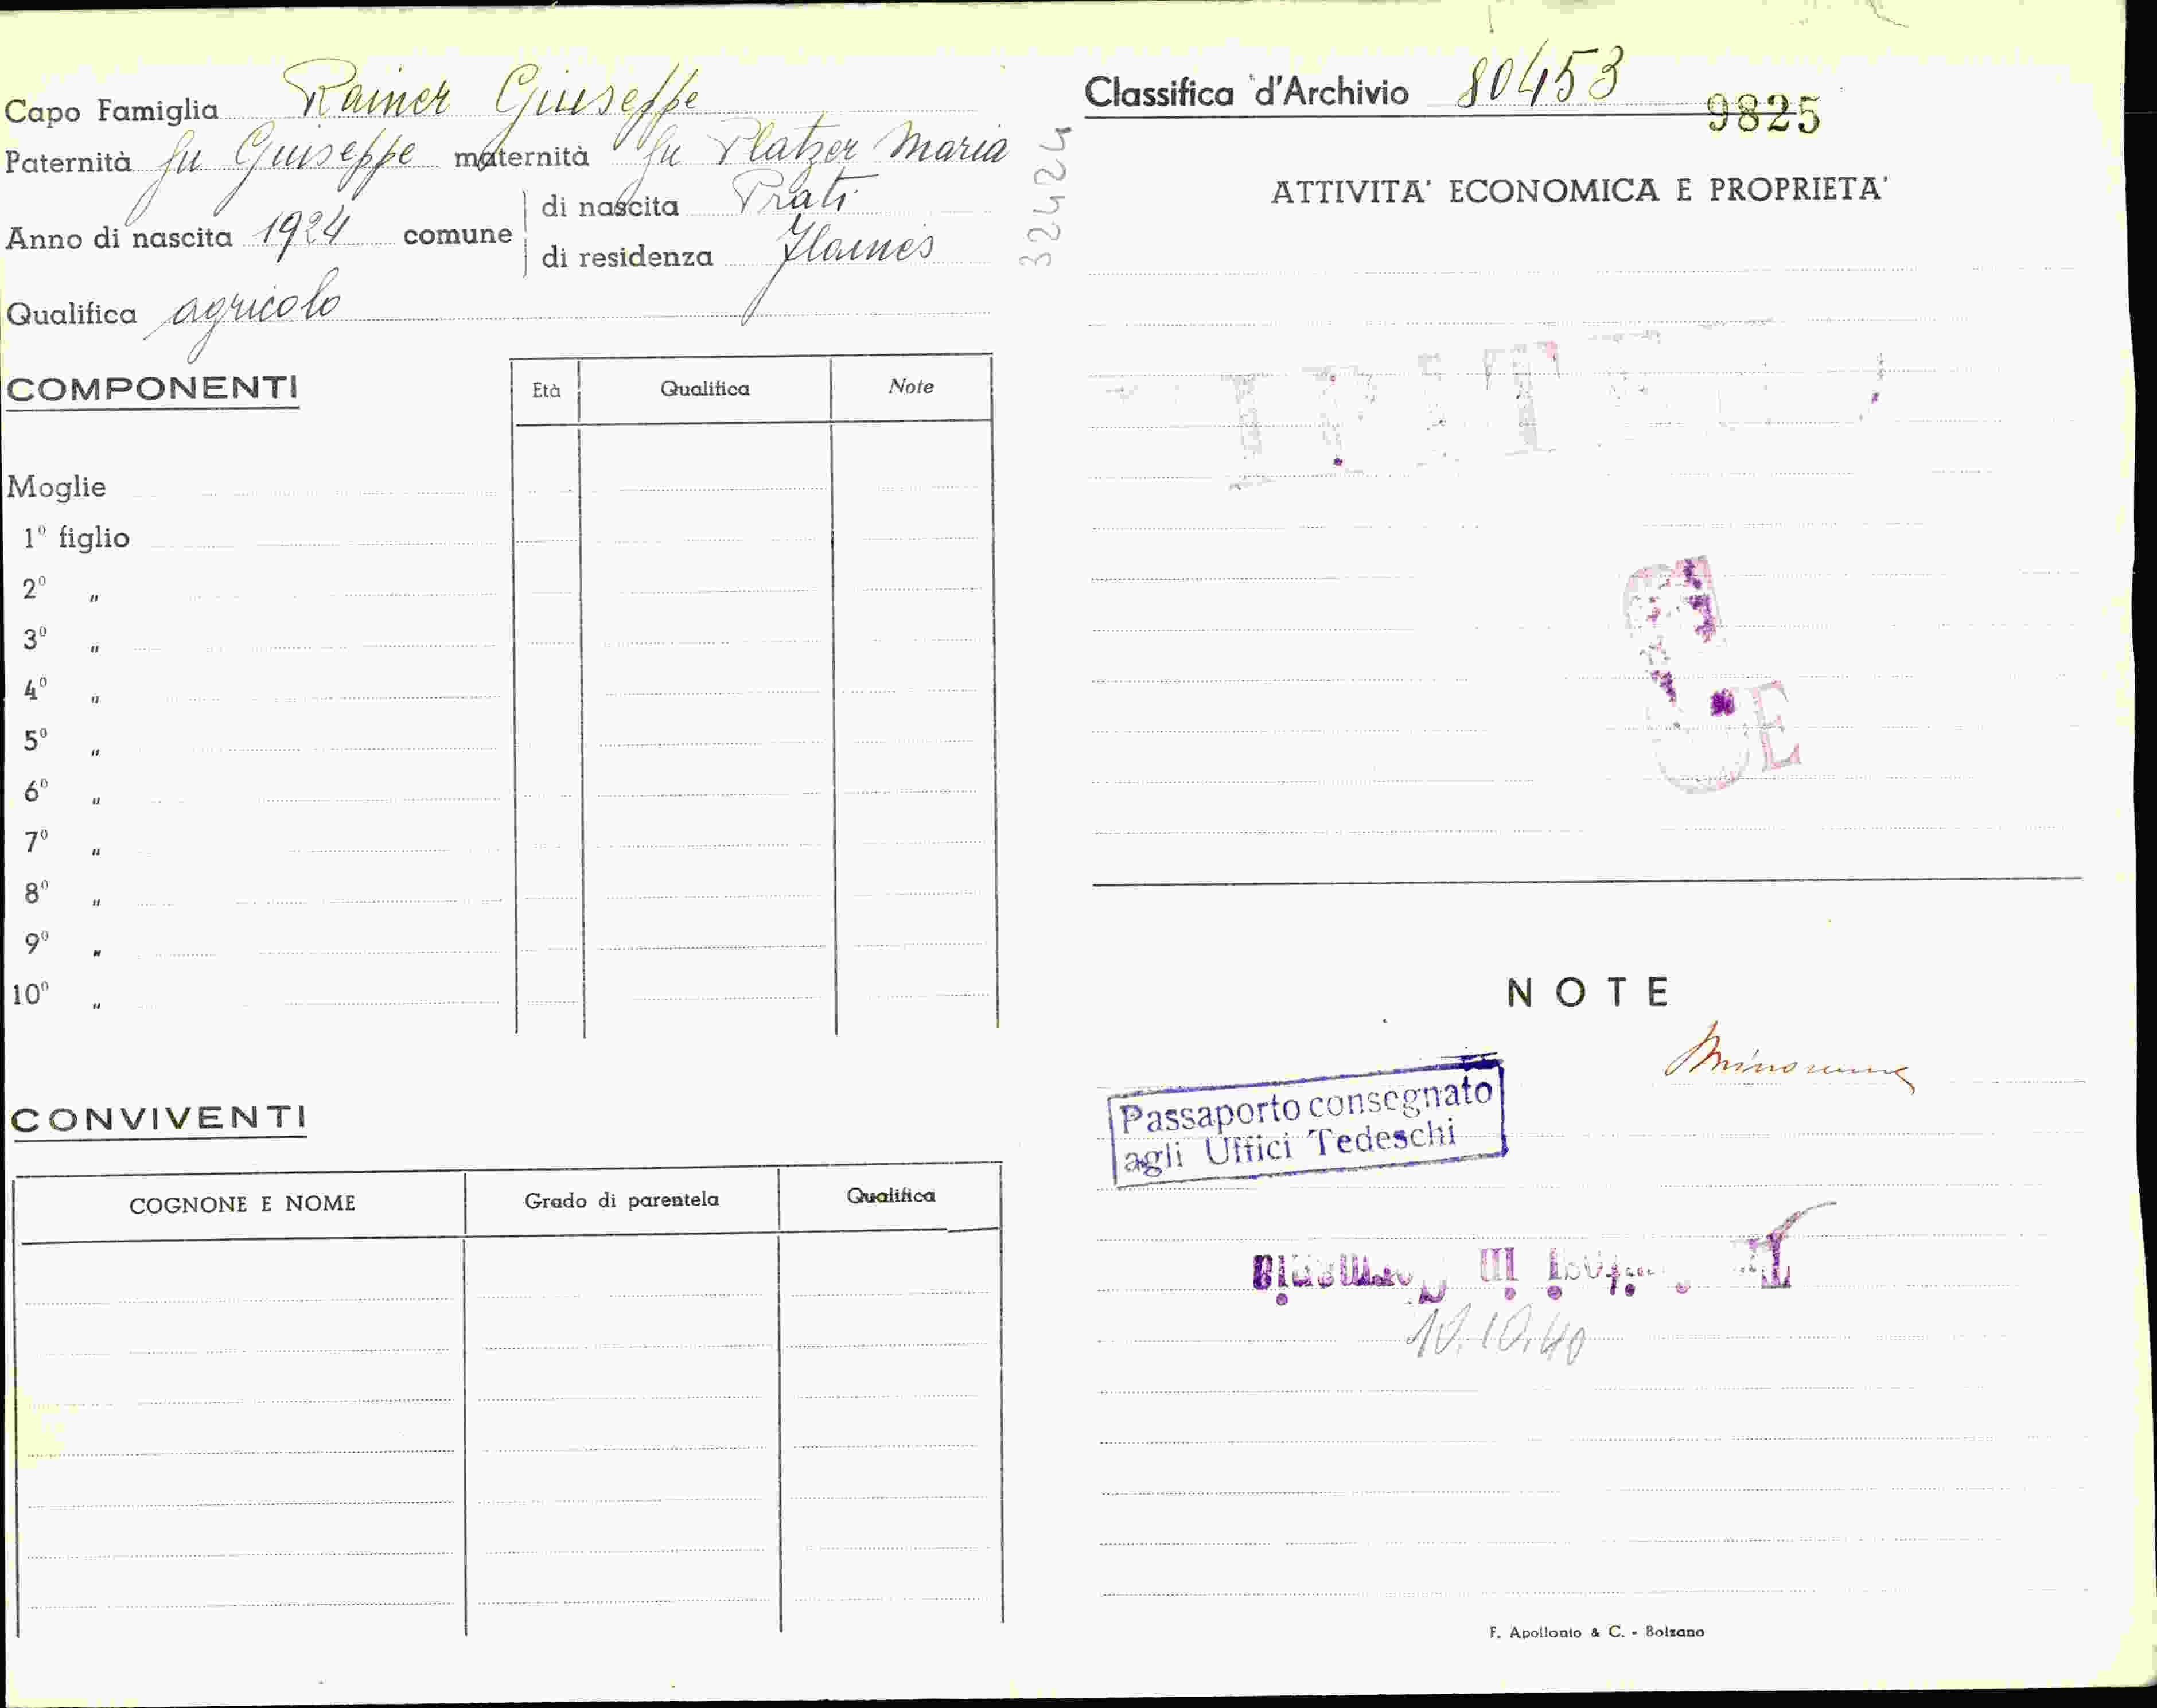 Capo Famiglia Rainer Giuseppe
Paternità fu Giuseppe maternità fu Platzer Maria
Anno di nascita 1924 comune di nascita Prati
di residenza Flaines
Qualifica agricolo
COMPONENTI Età Qualifica Note
Moglie
1º figlio
2º "
3º "
4º "
5º "
6º "
7º "
8º "
9º "
10º "
CONVIVENTI
COGNONE E NOME Grado di parentela Qualifica
32424
Classifica d'Archivio 80453
9825
ATTIVITA' ECONOMICA E PROPRIETA'
E
NOTE
Minorenne
Passaporto consegnato
agli Uffici Tedeschi
10.10.40
F. Apollonio & C. - Bolzano